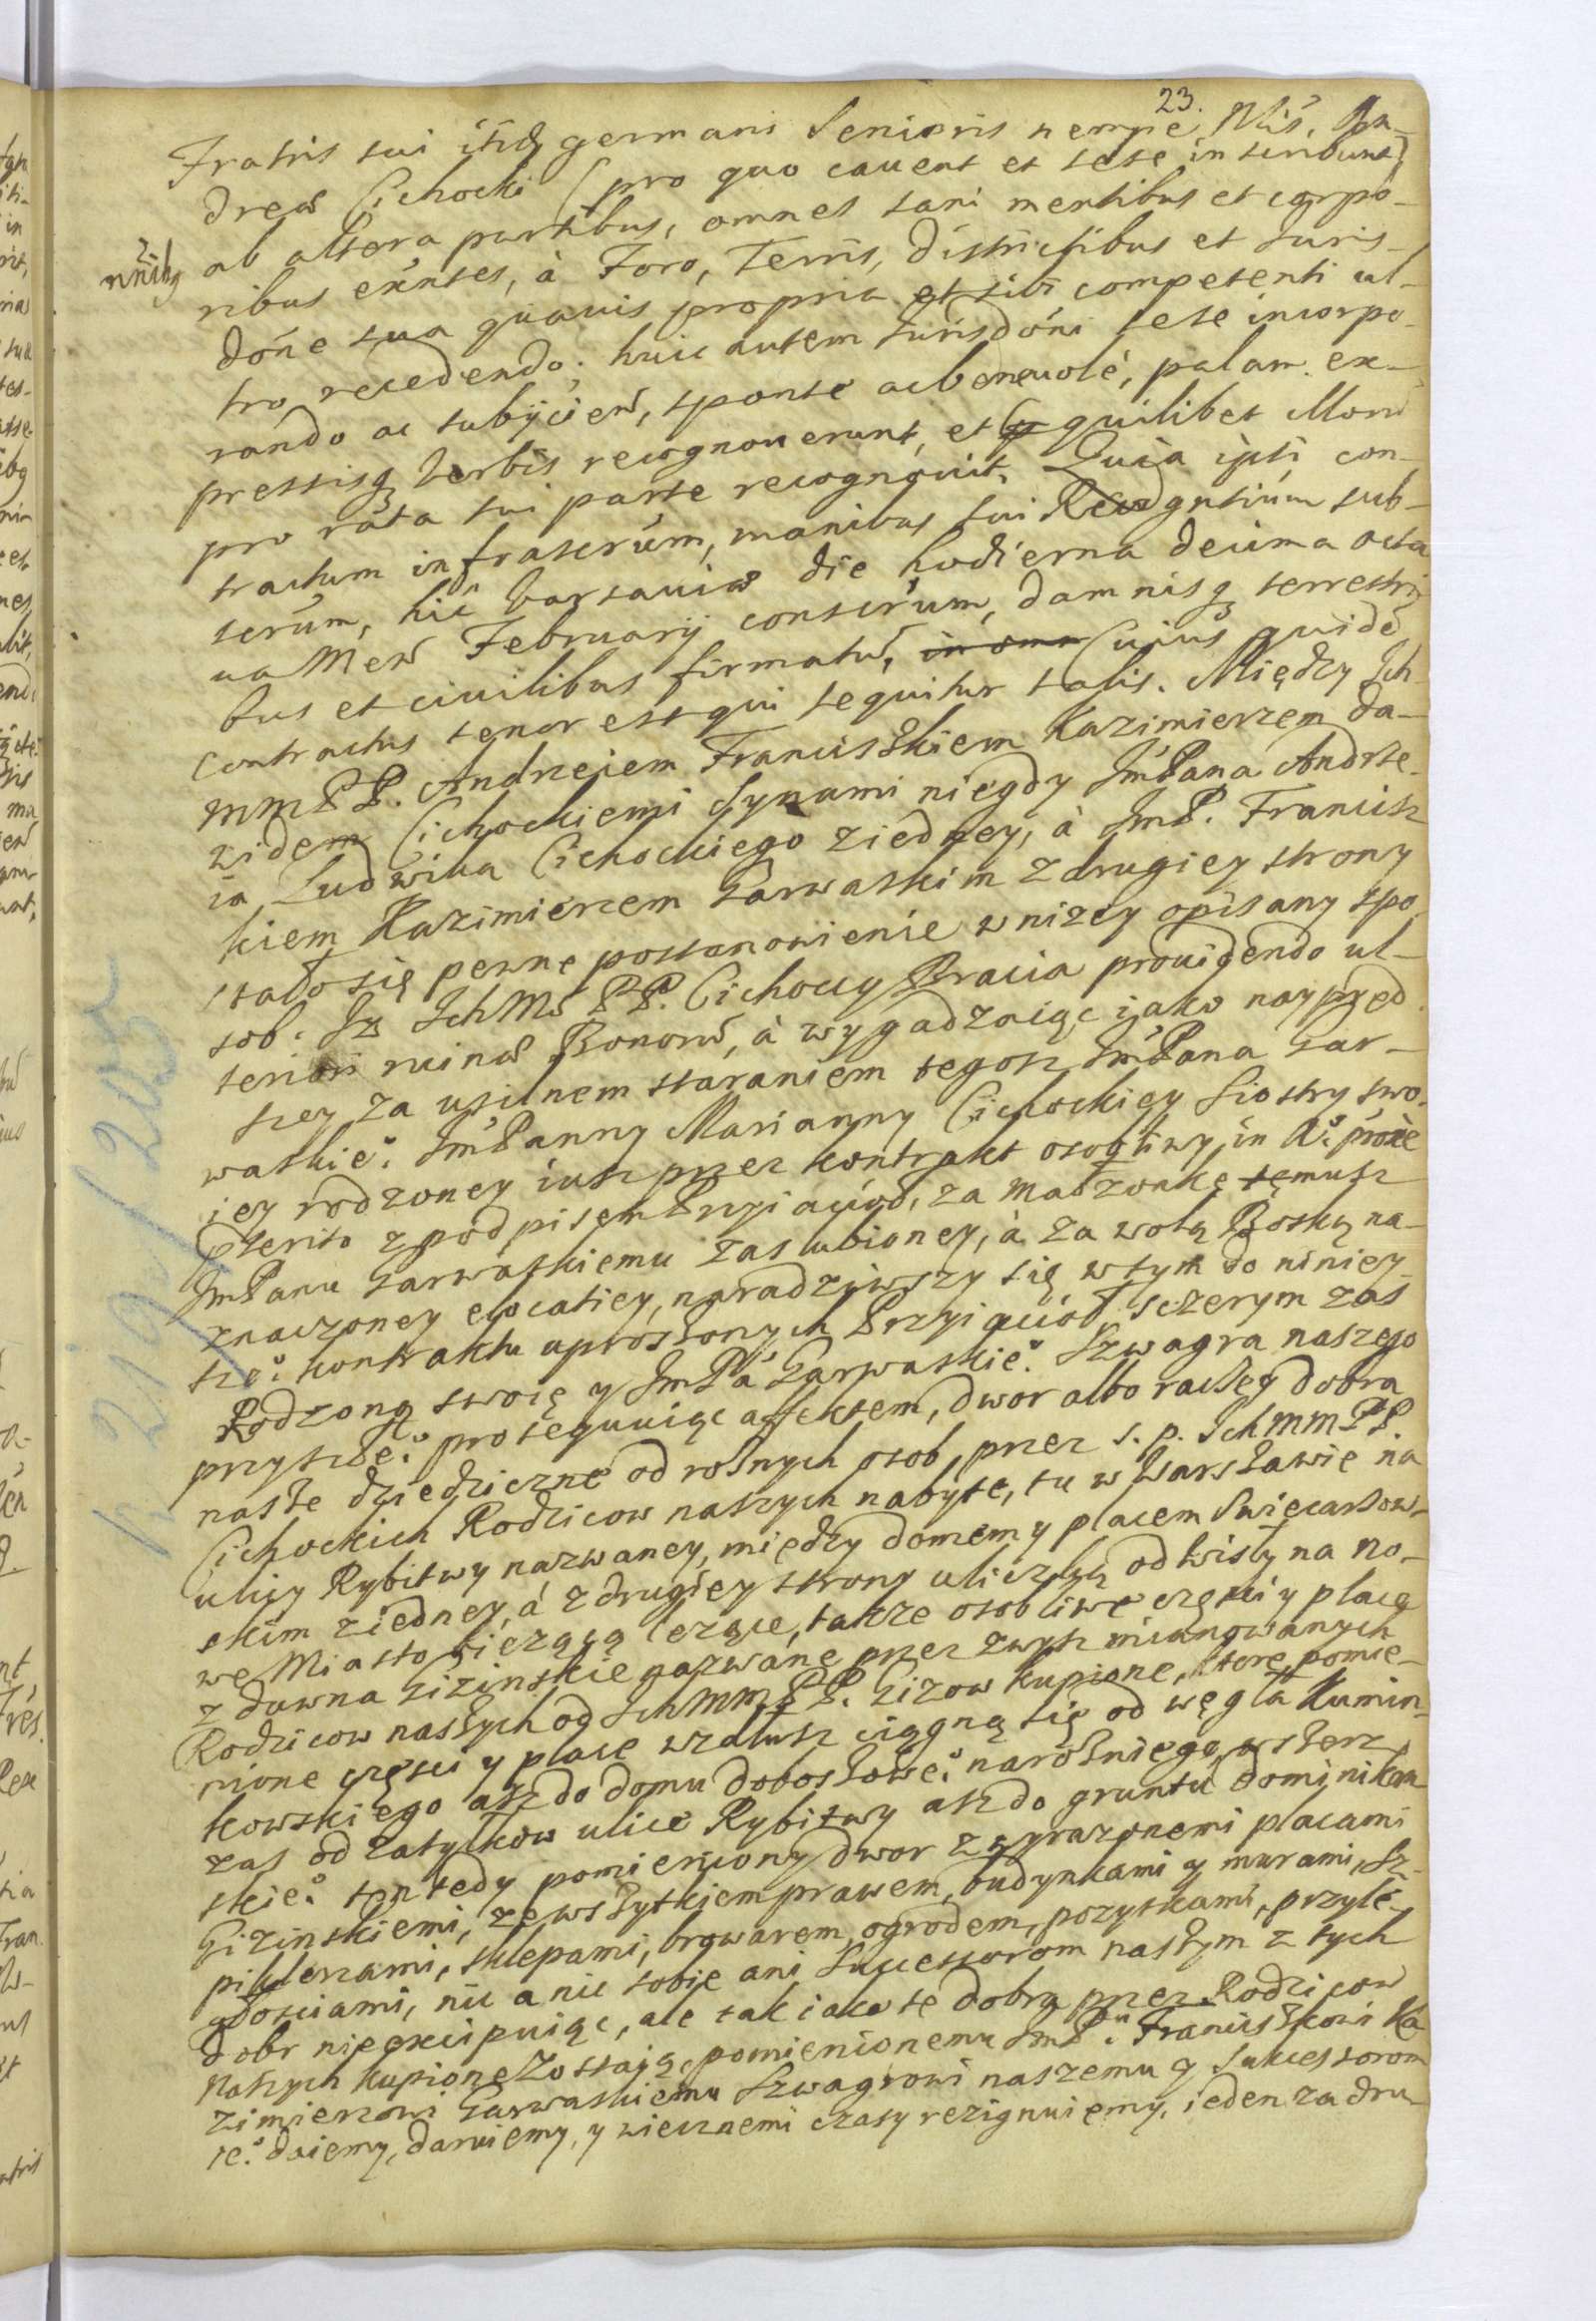 23.
Fratris sui itidq germani Senioris nempe Nlis. An-
drew Cichocki (pro quo cavent et sese inscribunt)
ab altera partibus, omnes sani mentibus et corpo-
ribus exntes, à Foro, Terris, districtibus et Juris-
done sua quavis propria et sibi competenti ul-
tro recedendo; huic autem Jurisdoni sese incorpo-
rando ac subÿcien, sponte ac benevolé, palam. ex-
pressisq verbis recognoverunt, et quilibet illorum
pro rata sui parte recognovit, Quia ipsi con-
tractum infrascrum, manibus sui Recogntium sub-
scrum, hic Varsaviæ die hodierna decima octa
va Men Februarÿ conscrum, damnisq terrestri
bus et civilibus firmatu, Cuius quide
contractus tenor est qui sequitur talis. Między Ich
mm P P. Andrzeiem Franciszkiem Kazimierzem Da-
widem Cichockiemi Synami niegdy Jm Pana Andrze-
ia Ludwika Cichockiego z iedney, à Jm P. Francisz
kiem Kazimierzem Garwaskim z drugiey strony
stało się pewne postanowienie w nizey opisany spo
sob: Jz Ich Mc P P. Cichoccy Bracia providendo ul-
teriori ruinæ Bonoru, à wygadzaiąc iako naypręd
szey za usilnem staraniem tegosz Jm Pana Gar-
waskie: Jm Panny Marianny Cichockiey Siostry swo-
iey rodzoney iusz przez kontrakt osobliwy in
pterito z podpisem Przyiaciół, za małzonkę temusz
Jm Panu Garwaskiemu zaslubioney, à za wolą Boską na-
znaczoney elocatiey, naradziwszy się w tym do niniey-
sze: kontraktu uproszonych Przyiaciół szczerym zas
Rodzoną swoię y Jm Pa Garwaskie: Szwagra naszego
przyszłe: prosequuiąc affektem, dwor albo raczey dobra
nasze dziedziczne od roznych osob, przez s. p. Ich mm P P.
Cichockich Rodzicow naszych nabyte, tu w Warszawie na
ulicy Rybitwy nazwaney, między domem y placem Swięcarzow-
skim z iedney, á z drugiey strony uliczką od Wisły na No-
we Miasto biezącą lezące, takze osobliwe częsci y place
z dawna Gizinskie nazwane przez zwysz mianowanych
Rodzicow naszych od Ich mm P P. Gizow kupione, ktore pomie-
nione częsci y place wzdłusz ciągną się od węgła Kumin-
kowskiego asz do domu Doboszowe: narozniego, wszerz
zas od zatyłkow ulice Rybitwy asz do gruntu Dominikan
skie: ten tedy pomieniony dwor z wyrazonemi placami
Gizinskiemi, ze wszytkiem prawem, budynkami y murami, Sz-
pihlerzami, sklepami, browarem, ogrodem, pozytkami, przyle-
głosciami, nic a nic sobie ani Successorom naszym z tych
dobr nie excipuiąc, ale tak iako te dobra przez Rodzicow
naszych kupione zostaią, pomienionemu Jm P. Franciszkowi Ka
zimierzowi Garwaskiemu Szwagrowi naszemu y Sukcessorom
ie: daiemy, daruiemy, y wiecznemi czasy rezignuiemy, ieden za dru-